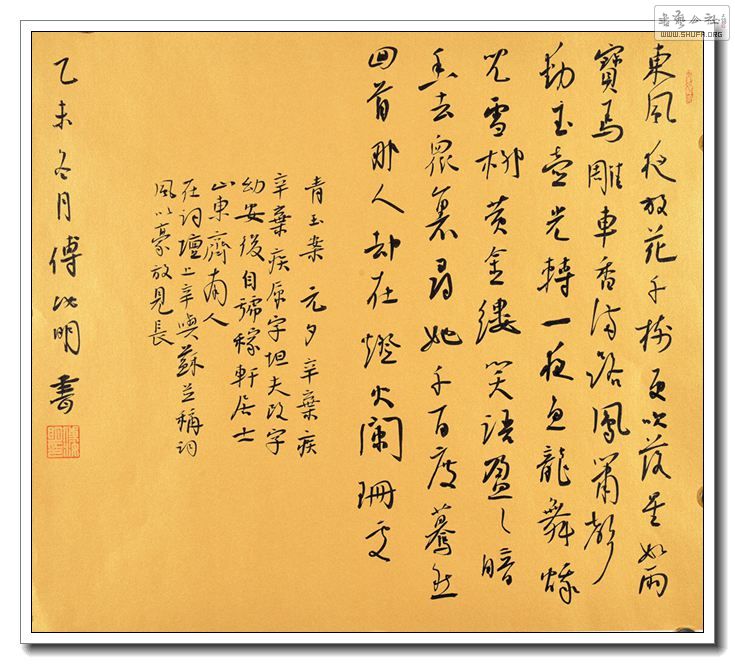 書藝公社
WWW.SHUFA.ORG
東風夜放花千樹更吹落星如雨
寶馬雕車香滿路鳳簫聲
動玉壺光轉一夜魚龍舞蛾
兒雪柳黃金縷笑語盈々暗
香去眾裏尋她千百度驀然
回首那人却在燈火闌珊處
青玉案 元夕 辛棄疾
辛棄疾原字坦夫改字
幼安後自號稼軒居士
山東濟南人
在詞壇上辛與蘇並稱詞
風以豪放見長
乙未冬月傅明書